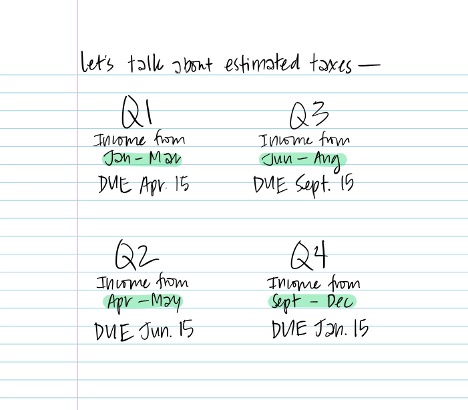 let's talk about estimated taxes —
Q1
Income from
Jan - Mar
DUE Apr. 15
Q3
Income from
Jun - Aug
DUE Sept. 15
Q2
Income from
Apr - May
DUE Jun. 15
Q4
Income from
Sept - Dec
DUE Jan. 15